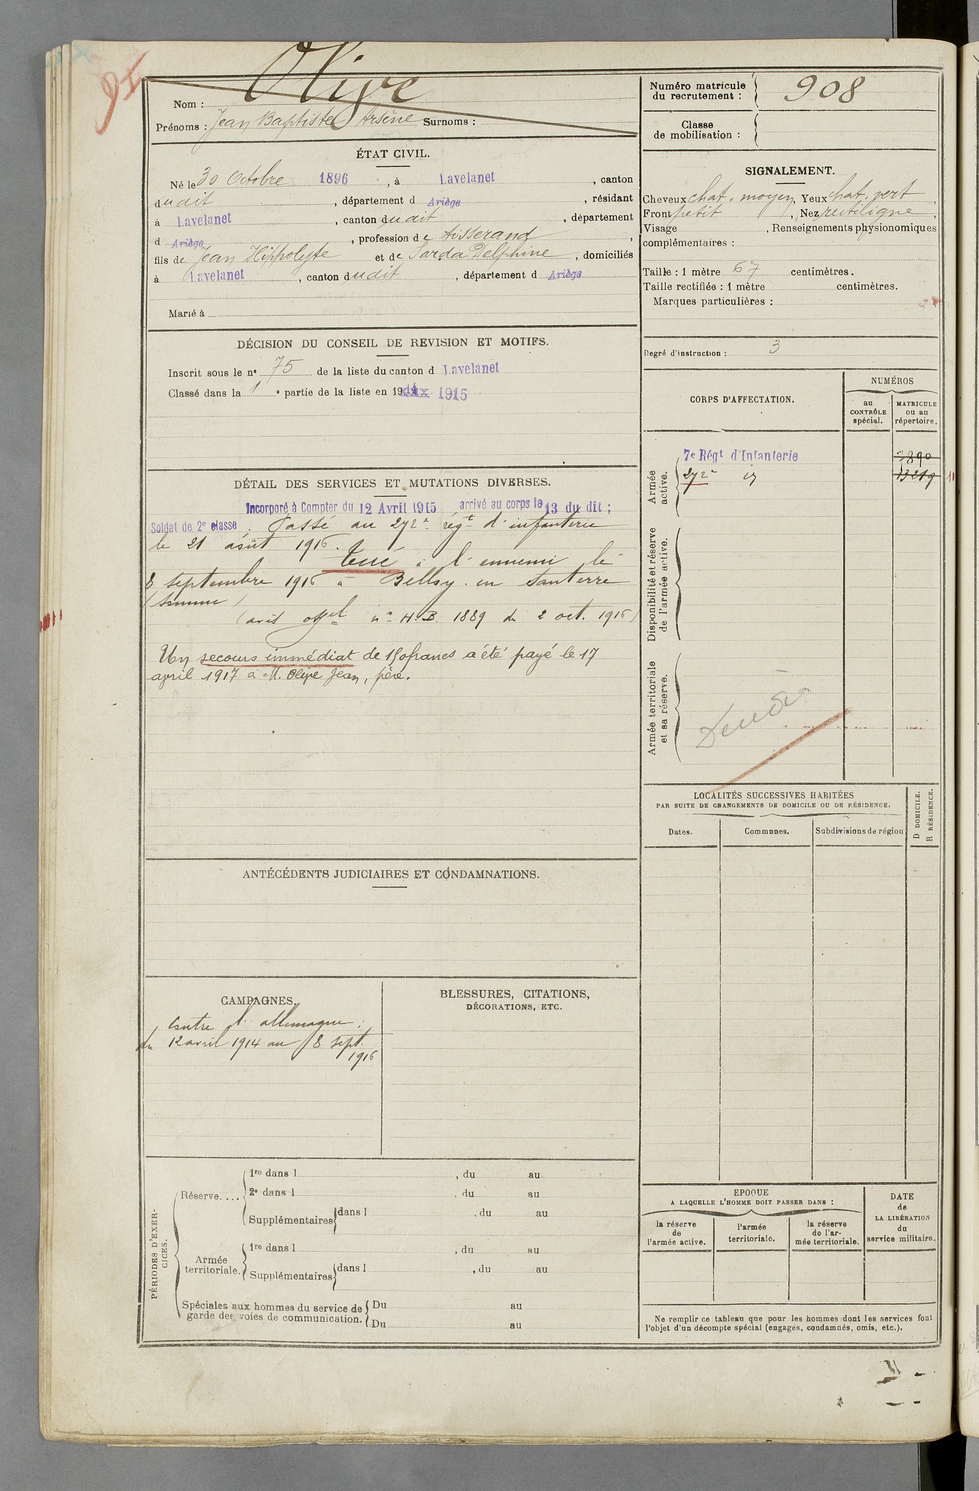 91
Nom : Olive
Prénoms : Jean Baptiste Arsène Surnoms :
Numéro matricule du recrutement : 908
Classe de mobilisation :
ÉTAT CIVIL.
Né le 30 Octobre 1896, à Lavelanet, canton
dudit, département d Ariège, résidant
à Lavelanet, canton dudit, département
d Ariège, profession de tisserand,
fils de Jean Hippolyte et de Sarda Delphine, domiciliés
à Lavelanet, canton dudit, département d Ariège
Marié à
SIGNALEMENT.
Cheveux chat. moyen, Yeux chat. vert,
Front petit, Nez rectiligne,
Visage , Renseignements physionomiques
complémentaires :
Taille : 1 mètre 67 centimètres.
Taille rectifiée : 1 mètre centimètres.
Marques particulières :
Degré d'instruction : 3
DÉCISION DU CONSEIL DE REVISION ET MOTIFS.
Inscrit sous le n° 75 de la liste du canton d Lavelanet
Classé dans la 1e partie de la liste en 19 1915
CORPS D'AFFECTATION.
NUMÉROS
au CONTRÔLE spécial.
MATRICULE ou au répertoire.
Armée active.
7e Régt d'Infanterie 3890
272e id 13219
Disponibilité et réserve de l'armée active.
Armée territoriale et sa réserve.
DÉTAIL DES SERVICES ET MUTATIONS DIVERSES.
Incorporé à Compter du 12 Avril 1915 arrivé au corps le 13 du dit ;
Soldat de 2e classe. Passé au 272e régt d'infanterie
le 21 août 1916.
Tué à l'ennemi le
8 septembre 1916 à Belloy en Santerre
(Somme)
(avis offel n° H.B 1889 du 2 oct. 1916)
Un secours immédiat de 150francs a été payé le 17
avril 1917 à M. Olive Jean, père.
LOCALITÉS SUCCESSIVES HABITÉES
PAR SUITE DE CHANGEMENTS DE DOMICILE OU DE RÉSIDENCE.
Dates.
Communes.
Subdivisions de région
D DOMICILE.
R RÉSIDENCE.
ANTÉCÉDENTS JUDICIAIRES ET CONDAMNATIONS.
CAMPAGNES.
Contre l'allemagne :
du 12 avril 1914 au 8 sept.
1916
BLESSURES, CITATIONS,
DÉCORATIONS, ETC.
PÉRIODES D'EXERCICES.
Réserve....
1re dans l , du au
2e dans l , du au
Supplémentaires dans l , du au
Armée territoriale.
1re dans l , du au
Supplémentaires dans l , du au
Spéciales aux hommes du service de
garde des voies de communication.
Du au
Du au
EPOQUE
A LAQUELLE L'HOMME DOIT PASSER DANS :
la réserve de l'armée active.
l'armée territoriale.
la réserve de l'armée territoriale.
DATE
de
LA LIBÉRATION
du
service militaire.
Ne remplir ce tableau que pour les hommes dont les services font
l'objet d'un décompte spécial (engagés, condamnés, omis, etc.).